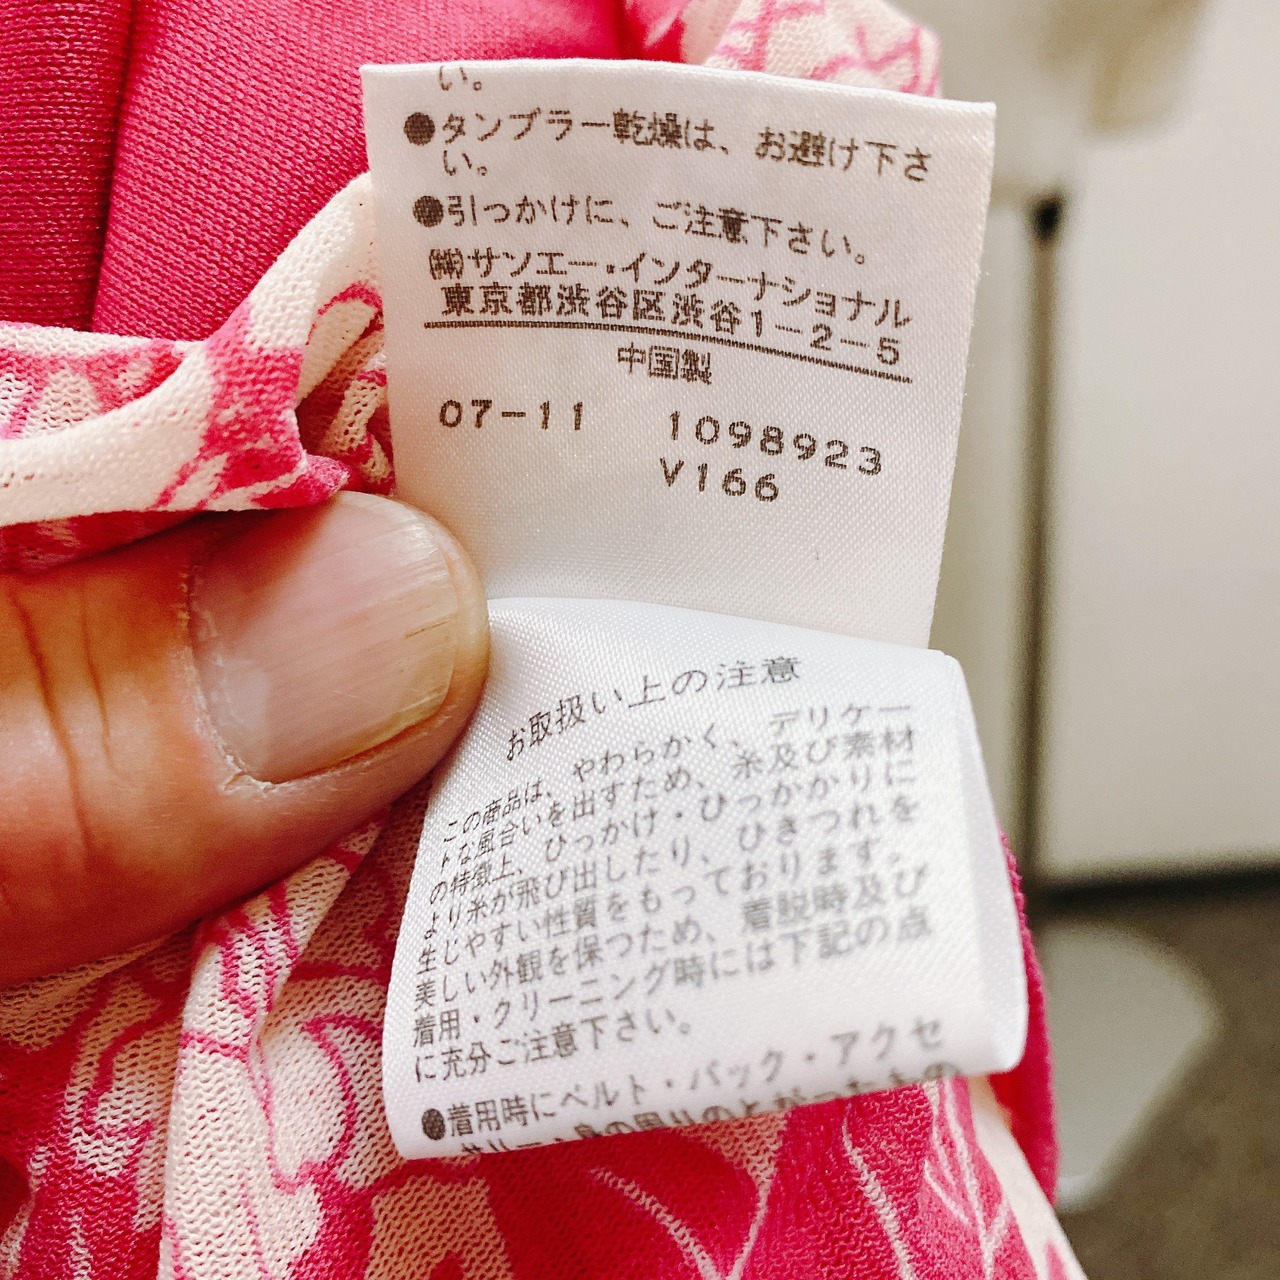 い。
●タンブラー乾燥は、お避け下さ
い。
●引っかけに、ご注意下さい。
㈱サンエー・インターナショナル
東京都渋谷区渋谷1-2-5
中国製
07-11 1098923
V166
お取扱い上の注意
この商品は、やわらかく、デリケー
トな風合いを出すため、糸及び素材
の特徴上、ひっかけ・ひっかかりに
より糸が飛び出したり、ひきつれを
生じやすい性質をもっております。
美しい外観を保つため、着脱時及び
着用・クリーニング時には下記の点
に充分ご注意下さい。
●着用時にベルト・バック・アクセ
サリー・身の周りのとがったもの